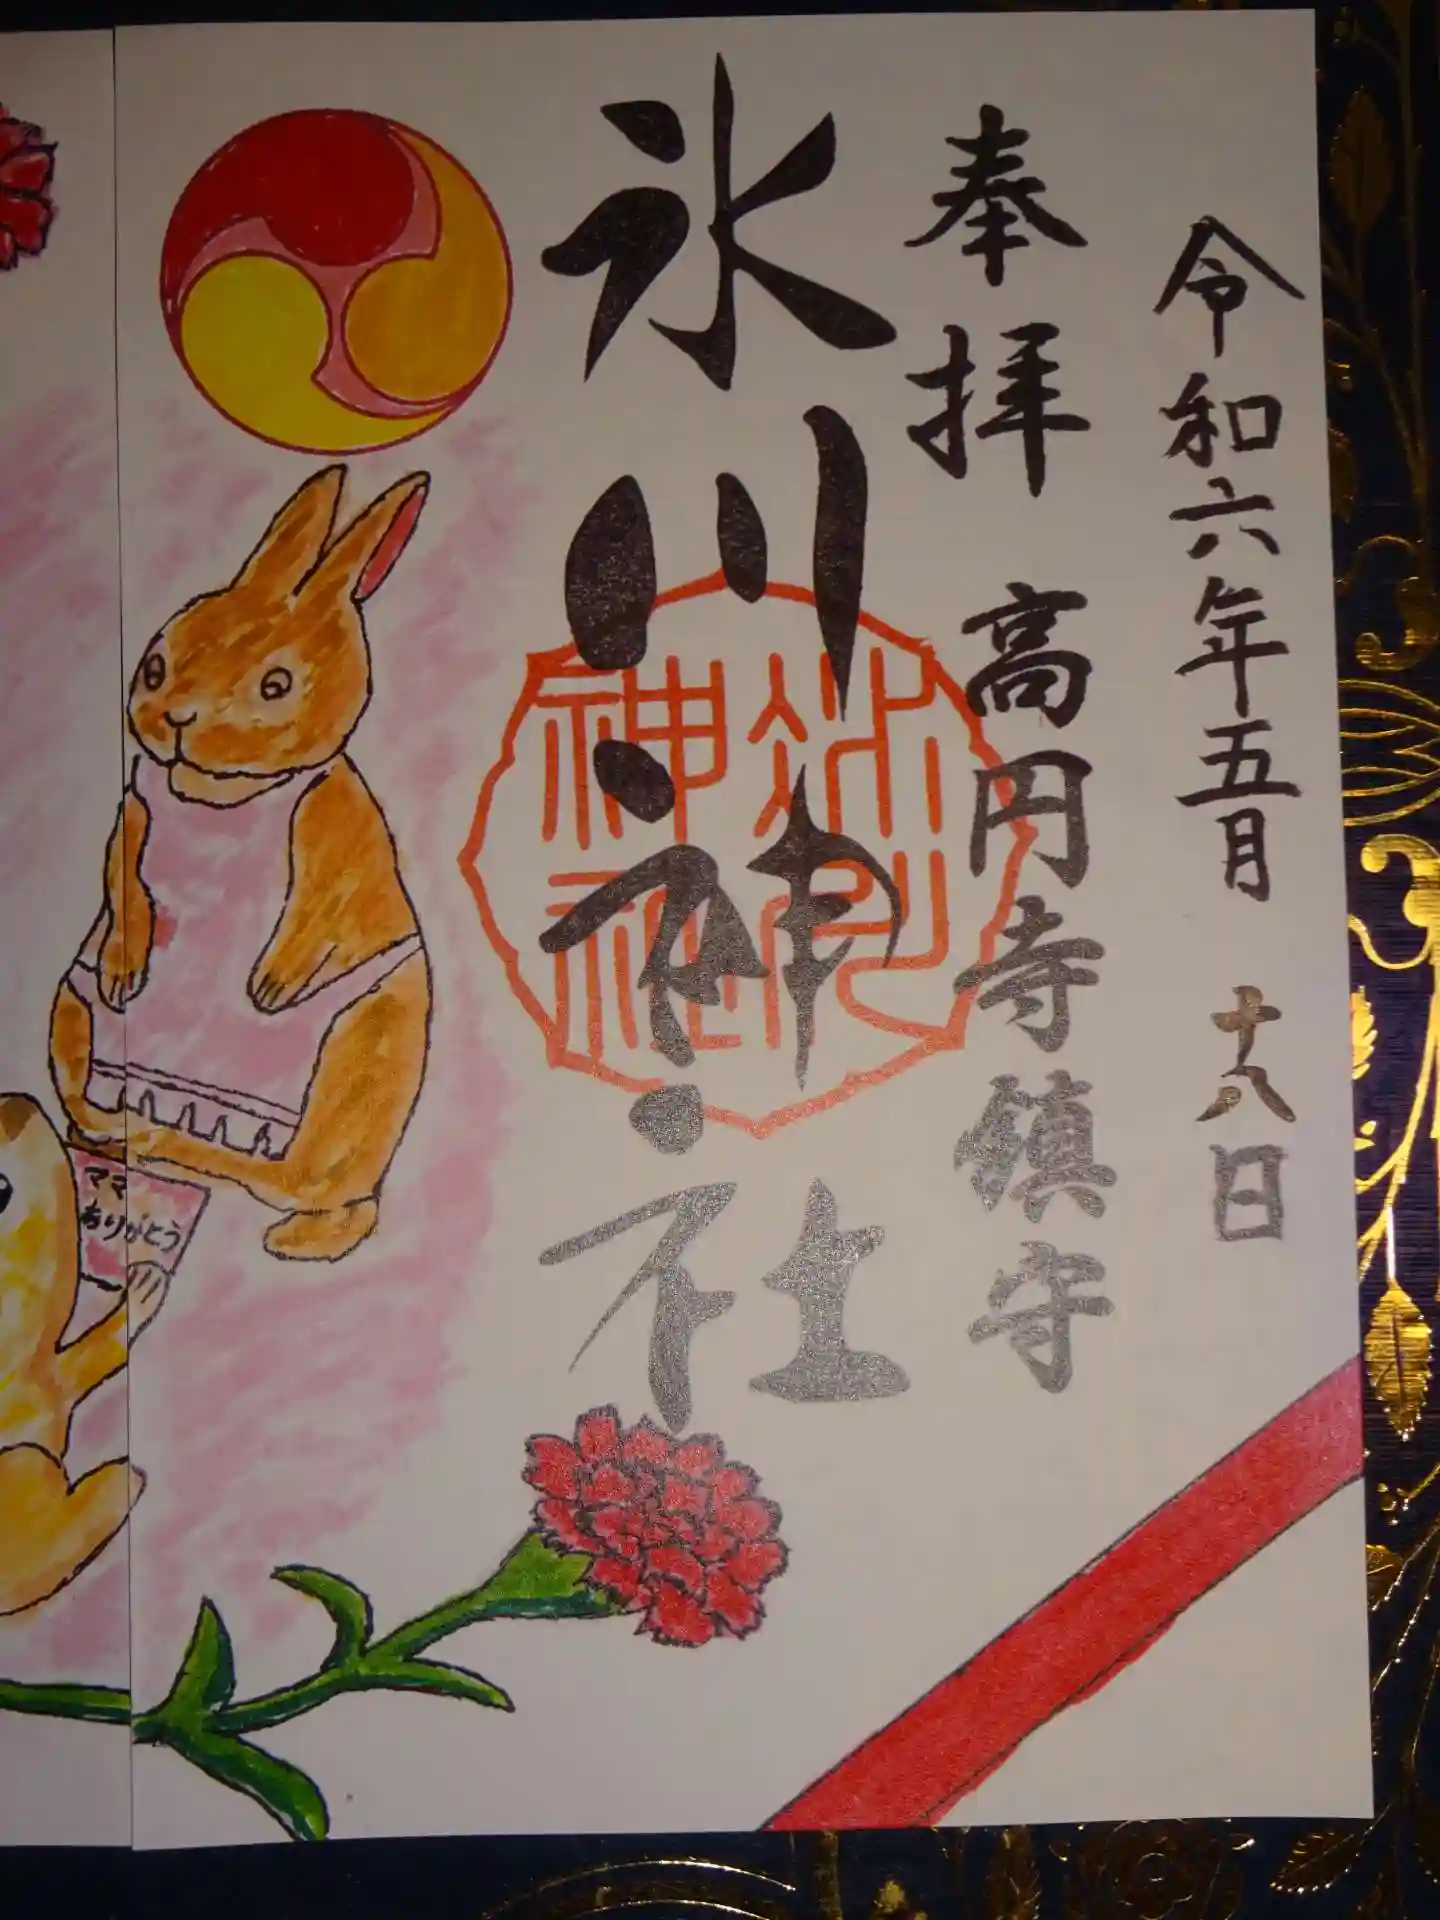 令和六年五月十八日
奉拝 高円寺鎮守
氷川神社
氷川
神社
ママ
ありがとう